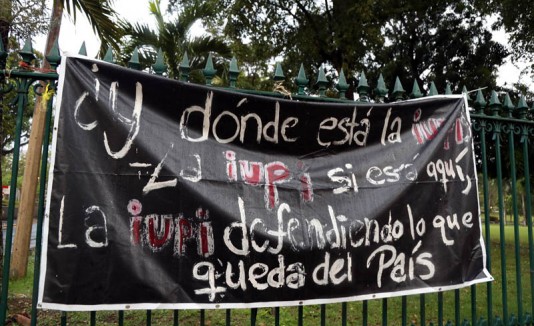 ¿Y dónde está la iupi?
-La iupi si está aquí,
La iupi defendiendo lo que
queda del País